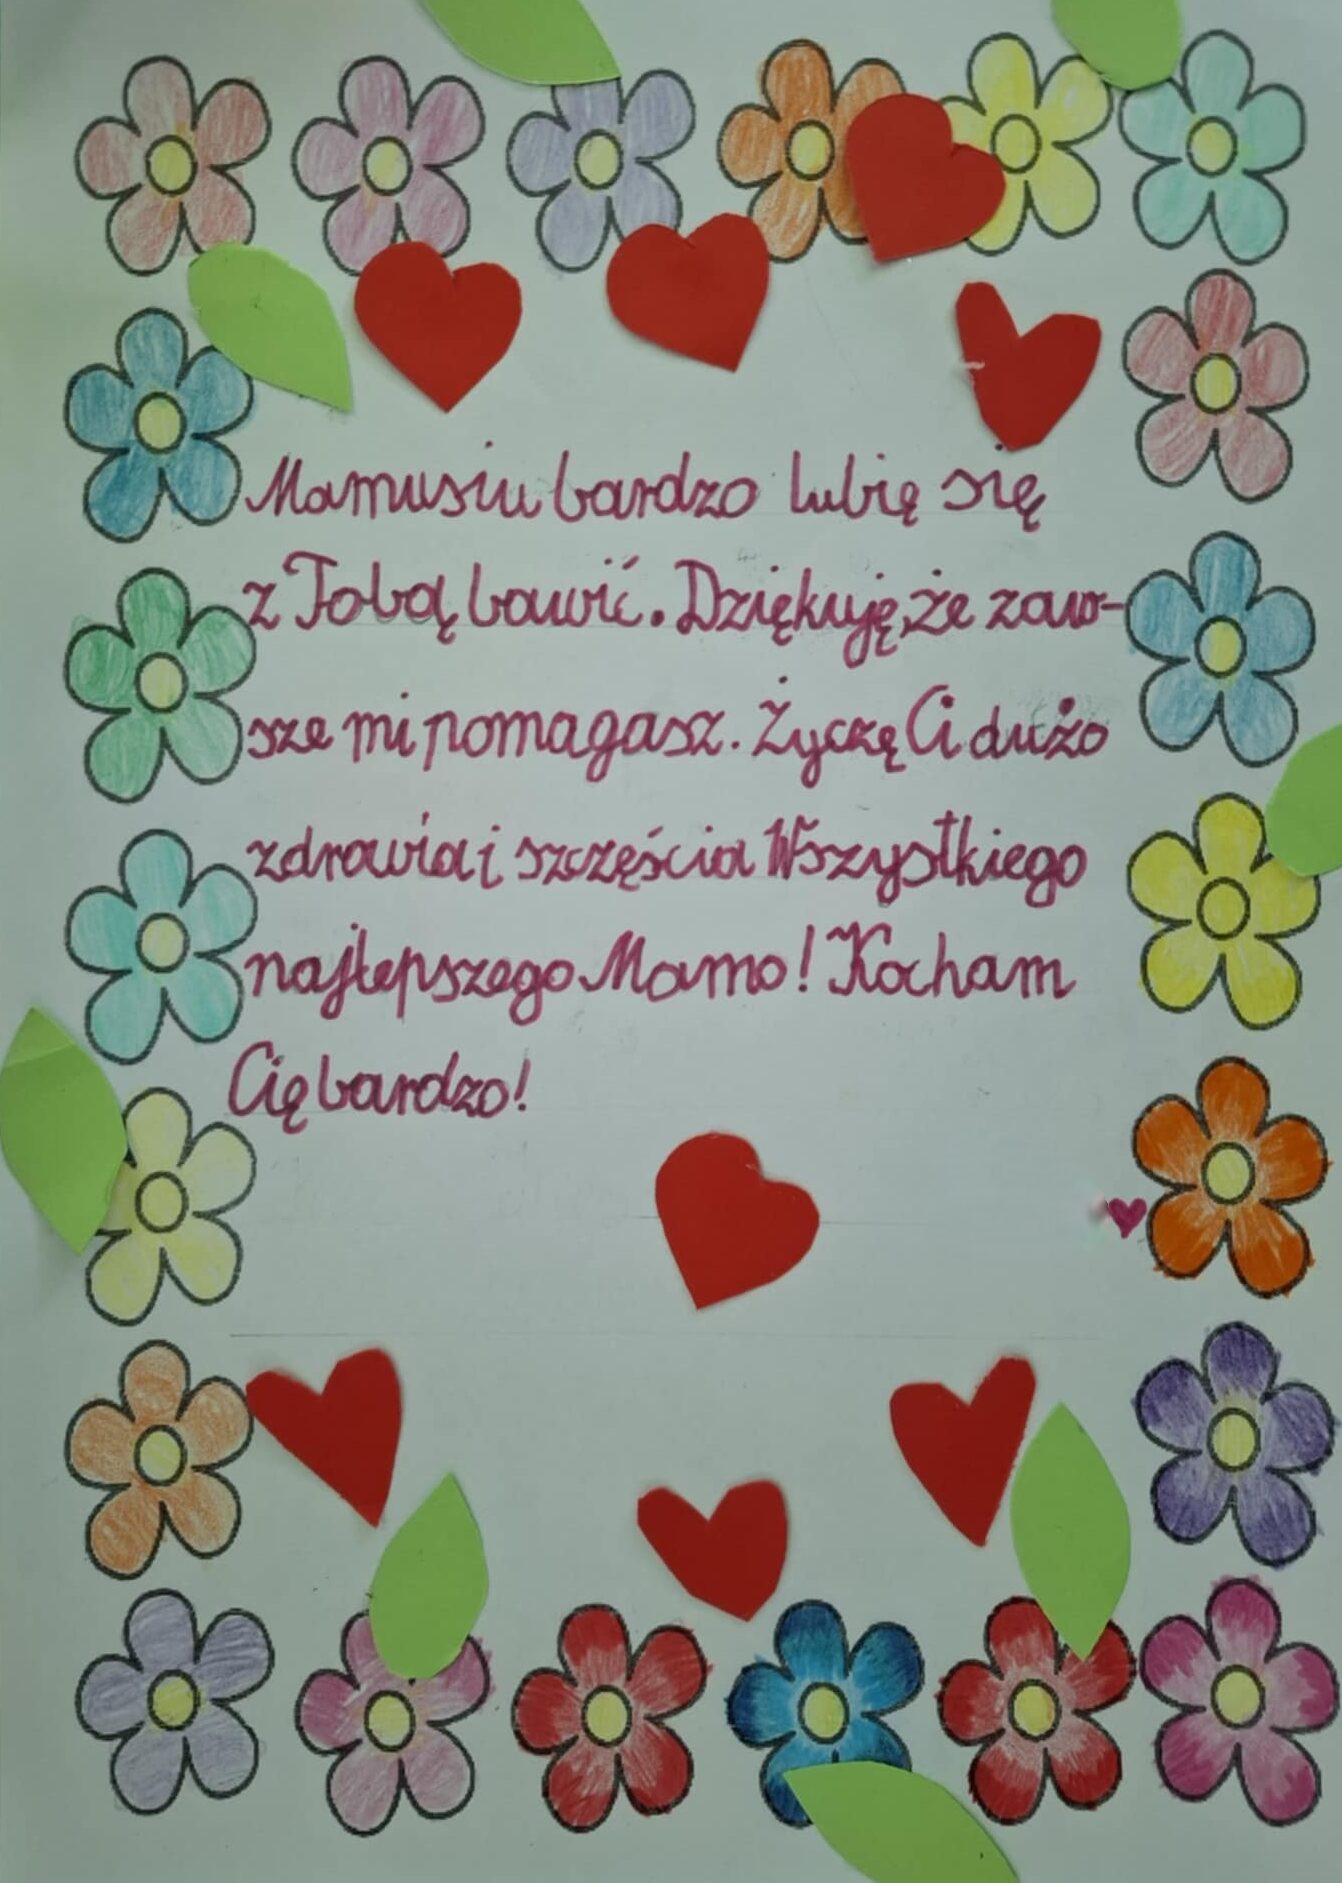 Mamusiu bardzo lubię się
z Tobą bawić. Dziękuję, że zaw-
sze mi pomagasz. Życzę Ci dużo
zdrowia i szczęścia Wszystkiego
najlepszego Mamo! Kocham
Cię bardzo!